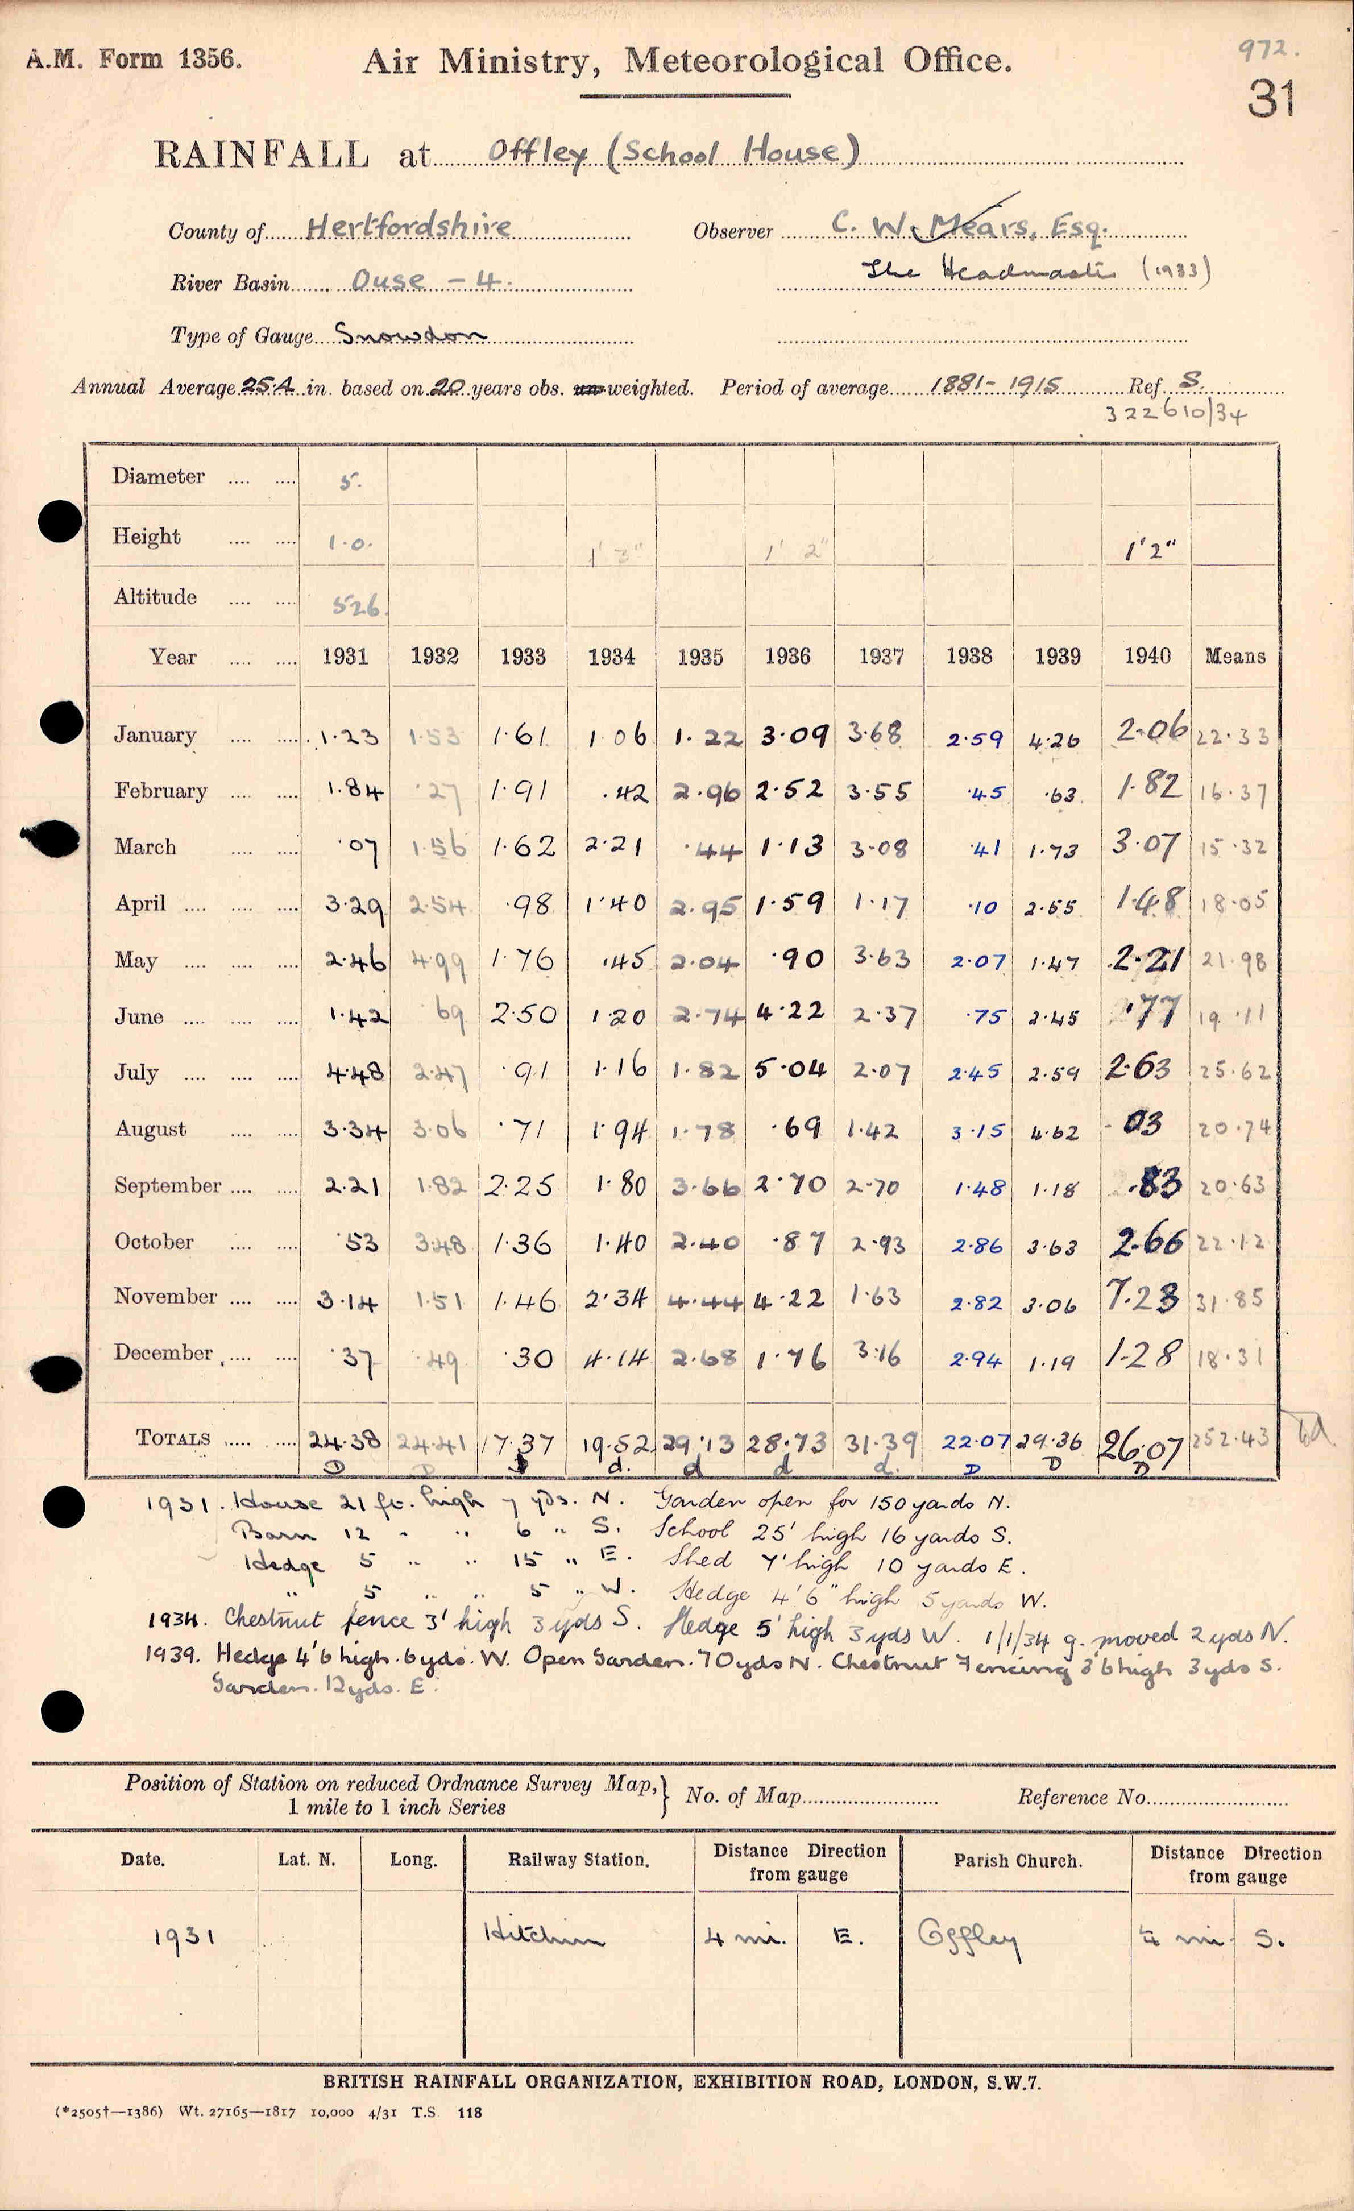 972.
A.M. Form 1356. Air Ministry, Meteorological Office.
31
RAINFALL at Offley (School House)
County of Hertfordshire Observer C. W. Mears, Esq.
River Basin Ouse - 4. The Headmaster (1933)
Type of Gauge Snowdon
Annual Average 25.4 in. based on 20 years obs. un weighted. Period of average 1881-1915 Ref. S.
322610/34
Diameter 5.
Height 1.0. 1' 3" 1' 2" 1'2"
Altitude 526.
Year 1931 1932 1933 1934 1935 1936 1937 1938 1939 1940 Means
January 1.23 1.53 1.61 1.06 1.22 3.09 3.68 2.59 4.26 2.06 22.33
February 1.84 .27 1.91 .42 2.96 2.52 3.55 .45 .63 1.82 16.37
March .07 1.56 1.62 2.21 .44 1.13 3.08 .41 1.73 3.07 15.32
April 3.29 2.54 .98 1.40 2.95 1.59 1.17 .10 2.55 1.48 18.05
May 2.46 4.99 1.76 .45 2.04 .90 3.63 2.07 1.47 2.21 21.98
June 1.42 .69 2.50 1.20 2.74 4.22 2.37 .75 2.45 .77 19.11
July 4.48 2.47 .91 1.16 1.82 5.04 2.07 2.45 2.59 2.63 25.62
August 3.34 3.06 .71 1.94 1.78 .69 1.42 3.15 4.62 .03 20.74
September 2.21 1.82 2.25 1.80 3.66 2.70 2.70 1.48 1.18 .83 20.63
October .53 3.48 1.36 1.40 2.40 .87 2.93 2.86 3.63 2.66 22.12
November 3.14 1.51 1.46 2.34 4.44 4.22 1.63 2.82 3.06 7.23 31.85
December .37 .49 .30 4.14 2.68 1.76 3.16 2.94 1.19 1.28 18.31
TOTALS 24.38 24.41 17.37 19.52 29.13 28.73 31.39 22.07 29.36 26.07 252.43
D D d. d d d. D D D
1931. House 21 ft. high 7 yds. N. Garden open for 150 yards N.
Barn 12 " " 6 " S. School 25' high 16 yards S.
Hedge 5 " " 15 " E. Shed 7' high 10 yards E.
" 5 " " 5 " W. Hedge 4'6" high 5 yards W.
1934. Chestnut fence 3' high 3 yds S. Hedge 5' high 3 yds W. 1/1/34 g. moved 2 yds N.
1939. Hedge 4'6 high. 6 yds. W. Open Garden. 70 yds N. Chestnut Fencing 3'6 high 3 yds S.
Garden. 12 yds. E.
Position of Station on reduced Ordnance Survey Map, } No. of Map Reference No.
1 mile to 1 inch Series
Date. Lat. N. Long. Railway Station. Distance Direction from gauge Parish Church. Distance Direction from gauge
1931 Hitchin 4 mi. E. Offley ¼ mi. S.
BRITISH RAINFALL ORGANIZATION, EXHIBITION ROAD, LONDON, S.W.7.
(*2505†—1386) Wt. 27165—1817 10,000 4/31 T.S. 118